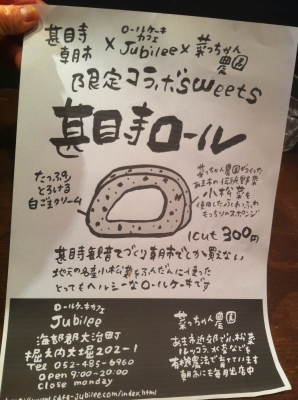 甚目寺朝市 × ロールケーキカフェ Jubilee × 菜っちゃん農園
限定コラボsweets
甚目寺ロール
たっぷり
とろける
白ごまクリーム
菜っちゃん農園がつくった
あま市の伝統野菜
小松菜を
使用したふわっふわ
もっちりのスポンジ
1cut 300円
甚目寺観音てづくり朝市でしか買えない
地元の名産小松菜をふんだんに使った
とってもヘルシーなロールケーキです
ロールケーキカフェ
Jubilee
海部郡大治町
堀之内大堀202-1
Tel 052-485-6960
open 9:00~20:00
close monday
cafe-jubilee.com/index.html
菜っちゃん農園
あま市近郊で小松菜
ルッコラ、水菜などを
有機農法で育てています
朝市にも毎月出店中